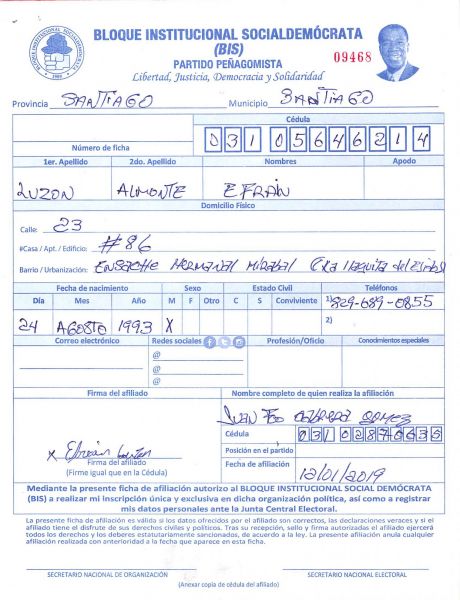 BLOQUE INSTITUCIONAL SOCIALDEMÓCRATA
(BIS)
PARTIDO PEÑAGOMISTA
09468
Libertad, Justicia, Democracia y Solidaridad
Provincia SANTIAGO Municipio SANTIAGO
Cédula
Número de ficha 031 0564621 4
1er. Apellido 2do. Apellido Nombres Apodo
LUZON ALMONTE EFRAIN
Domicilio Físico
Calle: 23
#Casa / Apt. / Edificio: #86
Barrio / Urbanización: ENSACHE HERMANAS MIRABAL
Fecha de nacimiento Sexo Estado Civil Teléfonos
Día Mes Año M F Otro C S Conviviente 1) 829-689-0855
24 AGOSTO 1993 X 2)
Correo electrónico Redes sociales Profesión/Oficio Conocimientos especiales
@
@
@
Firma del afiliado Nombre completo de quien realiza la afiliación
JUAN CABRERA GOMEZ
Cédula
x Efrain Luzon
Firma del afiliado
(Firme igual que en la Cédula)
Posición en el partido
Fecha de afiliación 12/01/2019
Mediante la presente ficha de afiliación autorizo al BLOQUE INSTITUCIONAL SOCIAL DEMÓCRATA
(BIS) a realizar mi inscripción única y exclusiva en dicha organización política, así como a registrar
mis datos personales ante la Junta Central Electoral.
La presente ficha de afiliación es válida si los datos ofrecidos por el afiliado son correctos, las declaraciones veraces y si el
afiliado tiene el disfrute de sus derechos civiles y políticos. Tras su recepción, sello y firma autorizadas el afiliado ejercerá
todos los derechos y los deberes estatutariamente sancionados, de acuerdo a la ley. La presente afiliación anula cualquier
afiliación realizada con anterioridad a la fecha que aparece en esta ficha.
SECRETARIO NACIONAL DE ORGANIZACIÓN SECRETARIO NACIONAL ELECTORAL
(Anexar copia de cédula del afiliado)